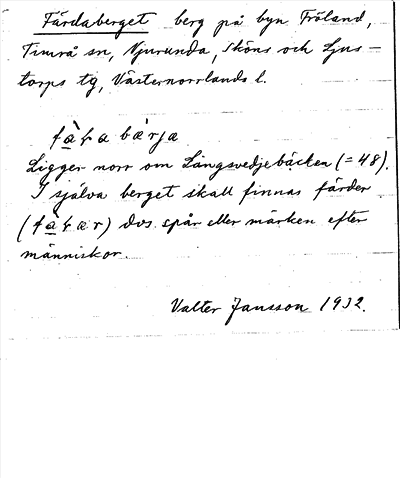 Färdaberget berg på byn Fröland,
Timrå sn, Njurunda, Sköns och Ljus-
torps tg, Västernorrlands l.
Ligger norr om Långsvedjebäcken (=48).
I själva berget skall finnas färder
dvs. spår eller märken efter
människor.
Valter Jansson 1932.